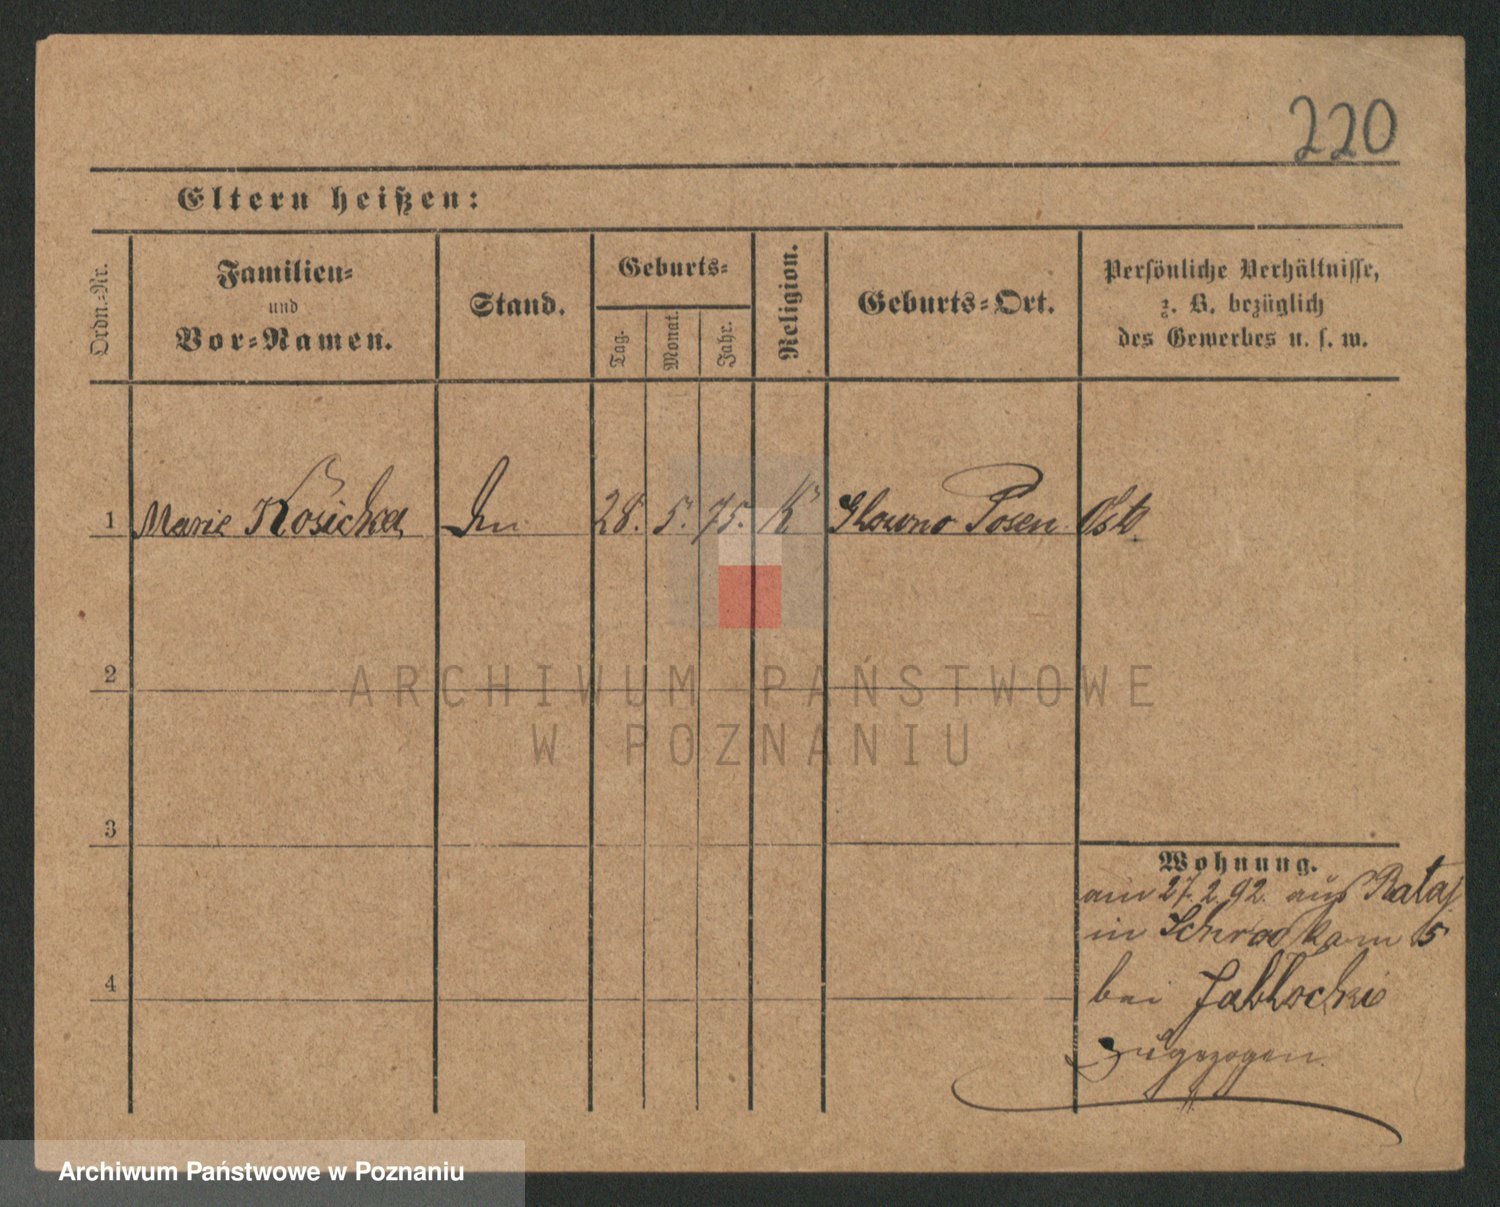 220
Eltern heißen:
Ordn.-Nr.
Familien-
und
Vor-Namen.
Stand.
Geburts-
Tag.
Monat.
Jahr.
Religion.
Geburts-Ort.
Persönliche Verhältnisse,
z. B. bezüglich
des Gewerbes u. s. w.
1 Marie Kosicka 28. 5. 75. K Glowno Posen Ost
2
3
4
Wohnung.
am 27.2.92. aus Rataj
in Schrodka 5
bei Jabłocki
zugezogen.
ARCHIWUM PAŃSTWOWE
W POZNANIU
Archiwum Państwowe w Poznaniu